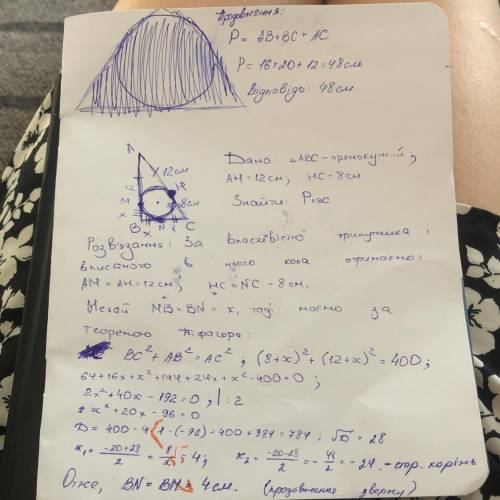 Продовження:
P = AB+BC+AC
P = 16+20+12=48см
Відповідь: 48см.
A
12см
12
H
M
8см
x
B x N C
Дано: △ABC – прямокутний;
AH=12см, HC=8см
Знайти: P
Розв'язання: За властивістю трикутника і
вписаного в нього кола отримаємо:
AM = AH=12см, HC=NC=8см.
Нехай MB=BN=x, тоді маємо за
теоремою Піфагора:
BC²+AB²=AC²; (8+x)²+(12+x)²=400;
64+16x+x²+144+24x+x²-400=0;
2x²+40x-192=0, |:2
x²+20x-96=0
D = 400-4·1·(-96)=400+384=784; √D=28
x₁= -20+28/2 = 8/2 = 4; x₂= -20-28/2 = -48/2 = -24. -стор. корінь
Отже, BN=BM=4см. (продовження зверху)